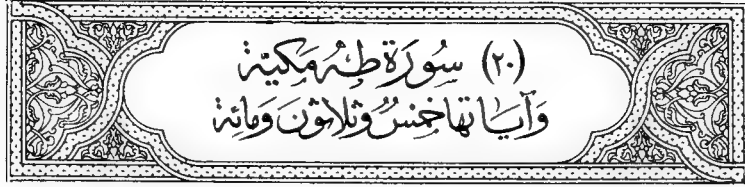 (٢٠) سُورَةُ طٰهٰ مَكِيَّة
وَآيَاتُهَا خَمْسٌ وَثَلَاثُونَ وَمِائَة